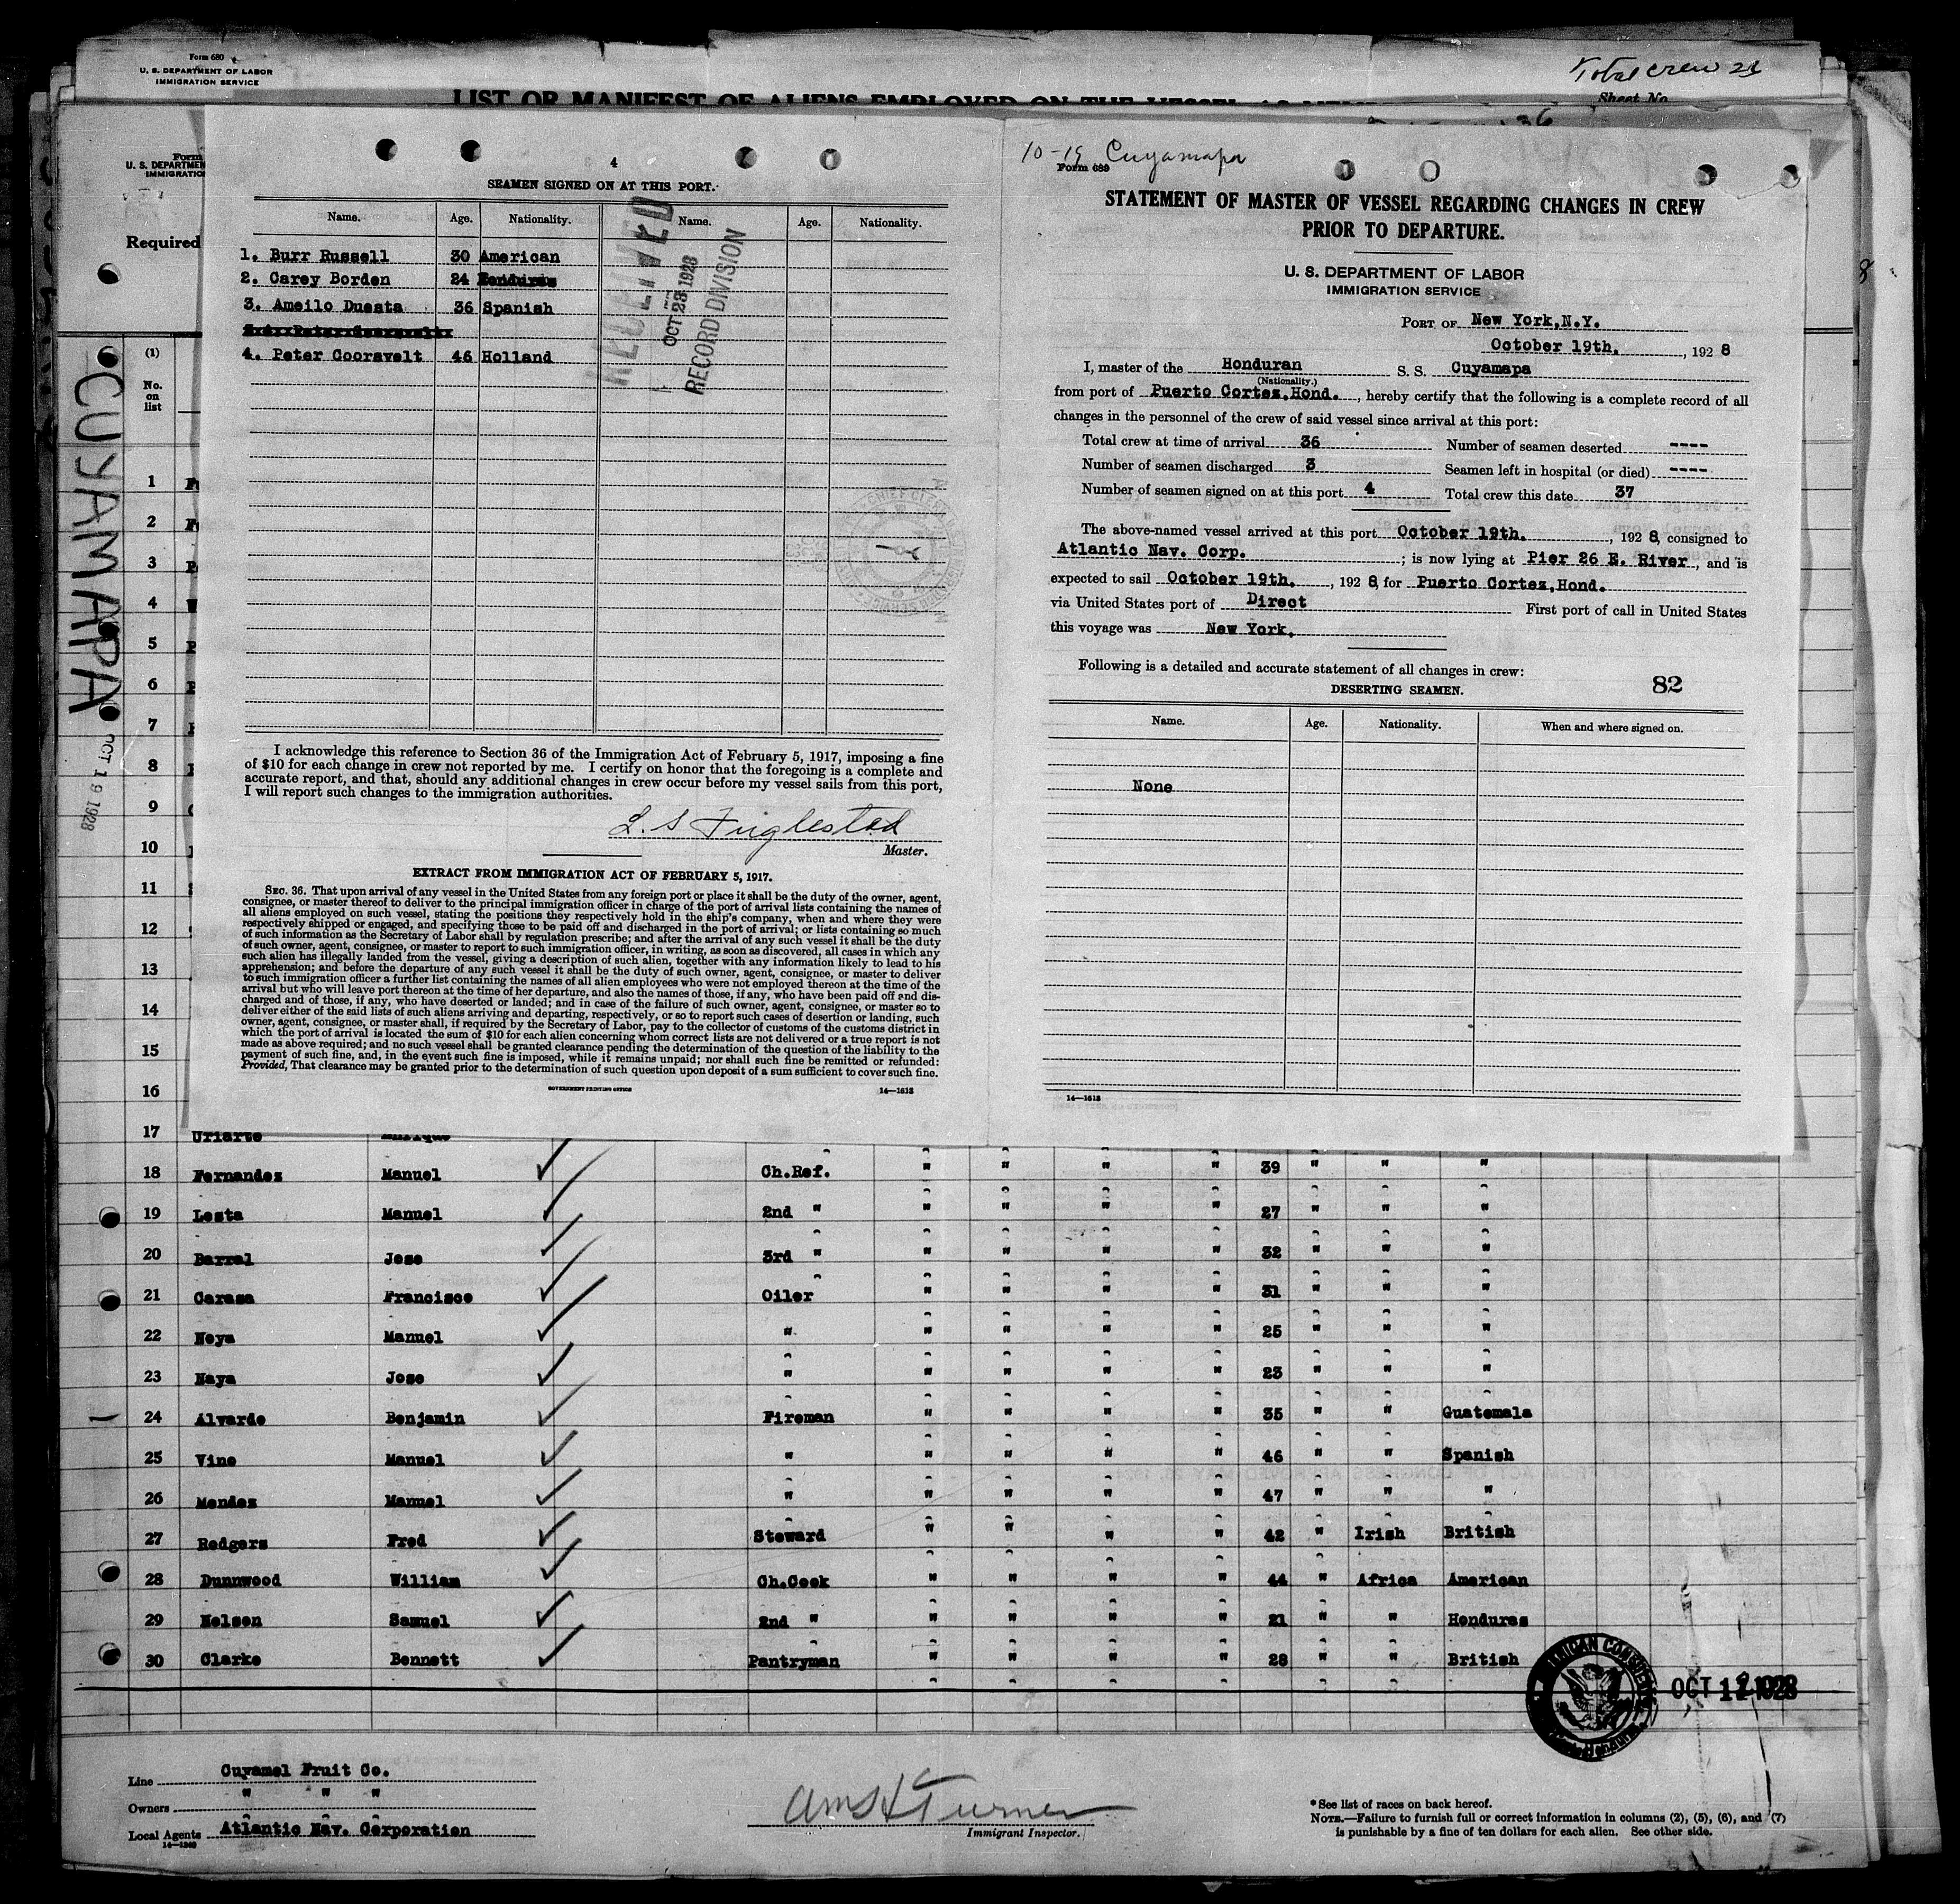 Form 680
U. S. DEPARTMENT OF LABOR
IMMIGRATION SERVICE
Total crew
Sheet No.
LIST OR MANIFEST OF ALIENS EMPLOYED ON THE VESSEL
36
Form
U. S. DEPARTMEN
IMMIGRATIO
Required
CUYAMAPA
OCT 19 1928
4
SEAMEN SIGNED ON AT THIS PORT.
Name. Age. Nationality. Name. Age. Nationality.
1. Burr Russell 30 American
2. Carey Borden 24 Honduras
3. Ameilo Duesta 36 Spanish
4. Peter Gooravelt 46 Holland
RECEIVED
OCT 23 1928
RECORD DIVISION
I acknowledge this reference to Section 36 of the Immigration Act of February 5, 1917, imposing a fine
of $10 for each change in crew not reported by me. I certify on honor that the foregoing is a complete and
accurate report, and that, should any additional changes in crew occur before my vessel sails from this port,
I will report such changes to the immigration authorities.
L. S Fuglestad
Master.
EXTRACT FROM IMMIGRATION ACT OF FEBRUARY 5, 1917.
SEC. 36. That upon arrival of any vessel in the United States from any foreign port or place it shall be the duty of the owner, agent,
consignee, or master thereof to deliver to the principal immigration officer in charge of the port of arrival lists containing the names of
all aliens employed on such vessel, stating the positions they respectively hold in the ship's company, when and where they were
respectively shipped or engaged, and specifying those to be paid off and discharged in the port of arrival; or lists containing so much
of such information as the Secretary of Labor shall by regulation prescribe; and after the arrival of any such vessel it shall be the duty
of such owner, agent, consignee, or master to report to such immigration officer, in writing, as soon as discovered, all cases in which any
such alien has illegally landed from the vessel, giving a description of such alien, together with any information likely to lead to his
apprehension; and before the departure of any such vessel it shall be the duty of such owner, agent, consignee, or master to deliver
to such immigration officer a further list containing the names of all alien employees who were not employed thereon at the time of the
arrival but who will leave port thereon at the time of her departure, and also the names of those, if any, who have been paid off and dis-
charged and of those, if any, who have deserted or landed; and in case of the failure of such owner, agent, consignee, or master so to
deliver either of the said lists of such aliens arriving and departing, respectively, or so to report such cases of desertion or landing, such
owner, agent, consignee, or master shall, if required by the Secretary of Labor, pay to the collector of customs of the customs district in
which the port of arrival is located the sum of $10 for each alien concerning whom correct lists are not delivered or a true report is not
made as above required; and no such vessel shall be granted clearance pending the determination of the question of the liability to the
payment of such fine, and, in the event such fine is imposed, while it remains unpaid; nor shall such fine be remitted or refunded:
Provided, That clearance may be granted prior to the determination of such question upon deposit of a sum sufficient to cover such fine.
GOVERNMENT PRINTING OFFICE 14—1613
10-19 Cuyamapa
Form 689
STATEMENT OF MASTER OF VESSEL REGARDING CHANGES IN CREW
PRIOR TO DEPARTURE.
U. S. DEPARTMENT OF LABOR
IMMIGRATION SERVICE
PORT OF New York,N.Y.
October 19th. , 192 8
I, master of the Honduran S. S. Cuyamapa
(Nationality.)
from port of Puerto Cortez,Hond. , hereby certify that the following is a complete record of all
changes in the personnel of the crew of said vessel since arrival at this port:
Total crew at time of arrival 36 Number of seamen deserted ----
Number of seamen discharged 3 Seamen left in hospital (or died) ----
Number of seamen signed on at this port 4 Total crew this date 37
The above-named vessel arrived at this port October 19th. , 192 8, consigned to
Atlantic Nav. Corp. ; is now lying at Pier 26 E. River , and is
expected to sail October 19th. , 192 8, for Puerto Cortez,Hond.
via United States port of Direct First port of call in United States
this voyage was New York.
Following is a detailed and accurate statement of all changes in crew:
DESERTING SEAMEN. 82
Name. Age. Nationality. When and where signed on.
None
14—1613
(1)
No. on list
1
2
3
4
5
6
7
8
9
10
11
12
13
14
15
16
17 Uriarte Enrique
18 Fernandez Manuel Ch.Ref. " " " " 39 " " "
19 Lesta Manuel 2nd " " " " " 27 " " "
20 Barral Jose 3rd " " " " " 32 " " "
21 Carasa Francisco Oiler " " " " 31 " " "
22 Noya Manuel " " " " " 25 " " "
23 Naya Jose " " " " " 23 " " "
24 Alvarde Benjamin Fireman " " " " 35 " " Guatemala
25 Vine Manuel " " " " " 46 " " Spanish
26 Mendez Manuel " " " " " 47 " " "
27 Rodgers Fred Steward " " " " 42 " Irish British
28 Dunnwood William Ch.Cook " " " " 44 " Africa American
29 Nelson Samuel 2nd " " " " " 21 " " Honduras
30 Clarke Bennett Pantryman " " " " 28 " " British
AMERICAN CONSULATE
OCT 1928
Line Cuyamel Fruit Co.
Owners " " "
Local Agents Atlantic Nav. Corporation
14—1240
Turner
Immigrant Inspector.
* See list of races on back hereof.
NOTE.—Failure to furnish full or correct information in columns (2), (5), (6), and (7)
is punishable by a fine of ten dollars for each alien. See other side.